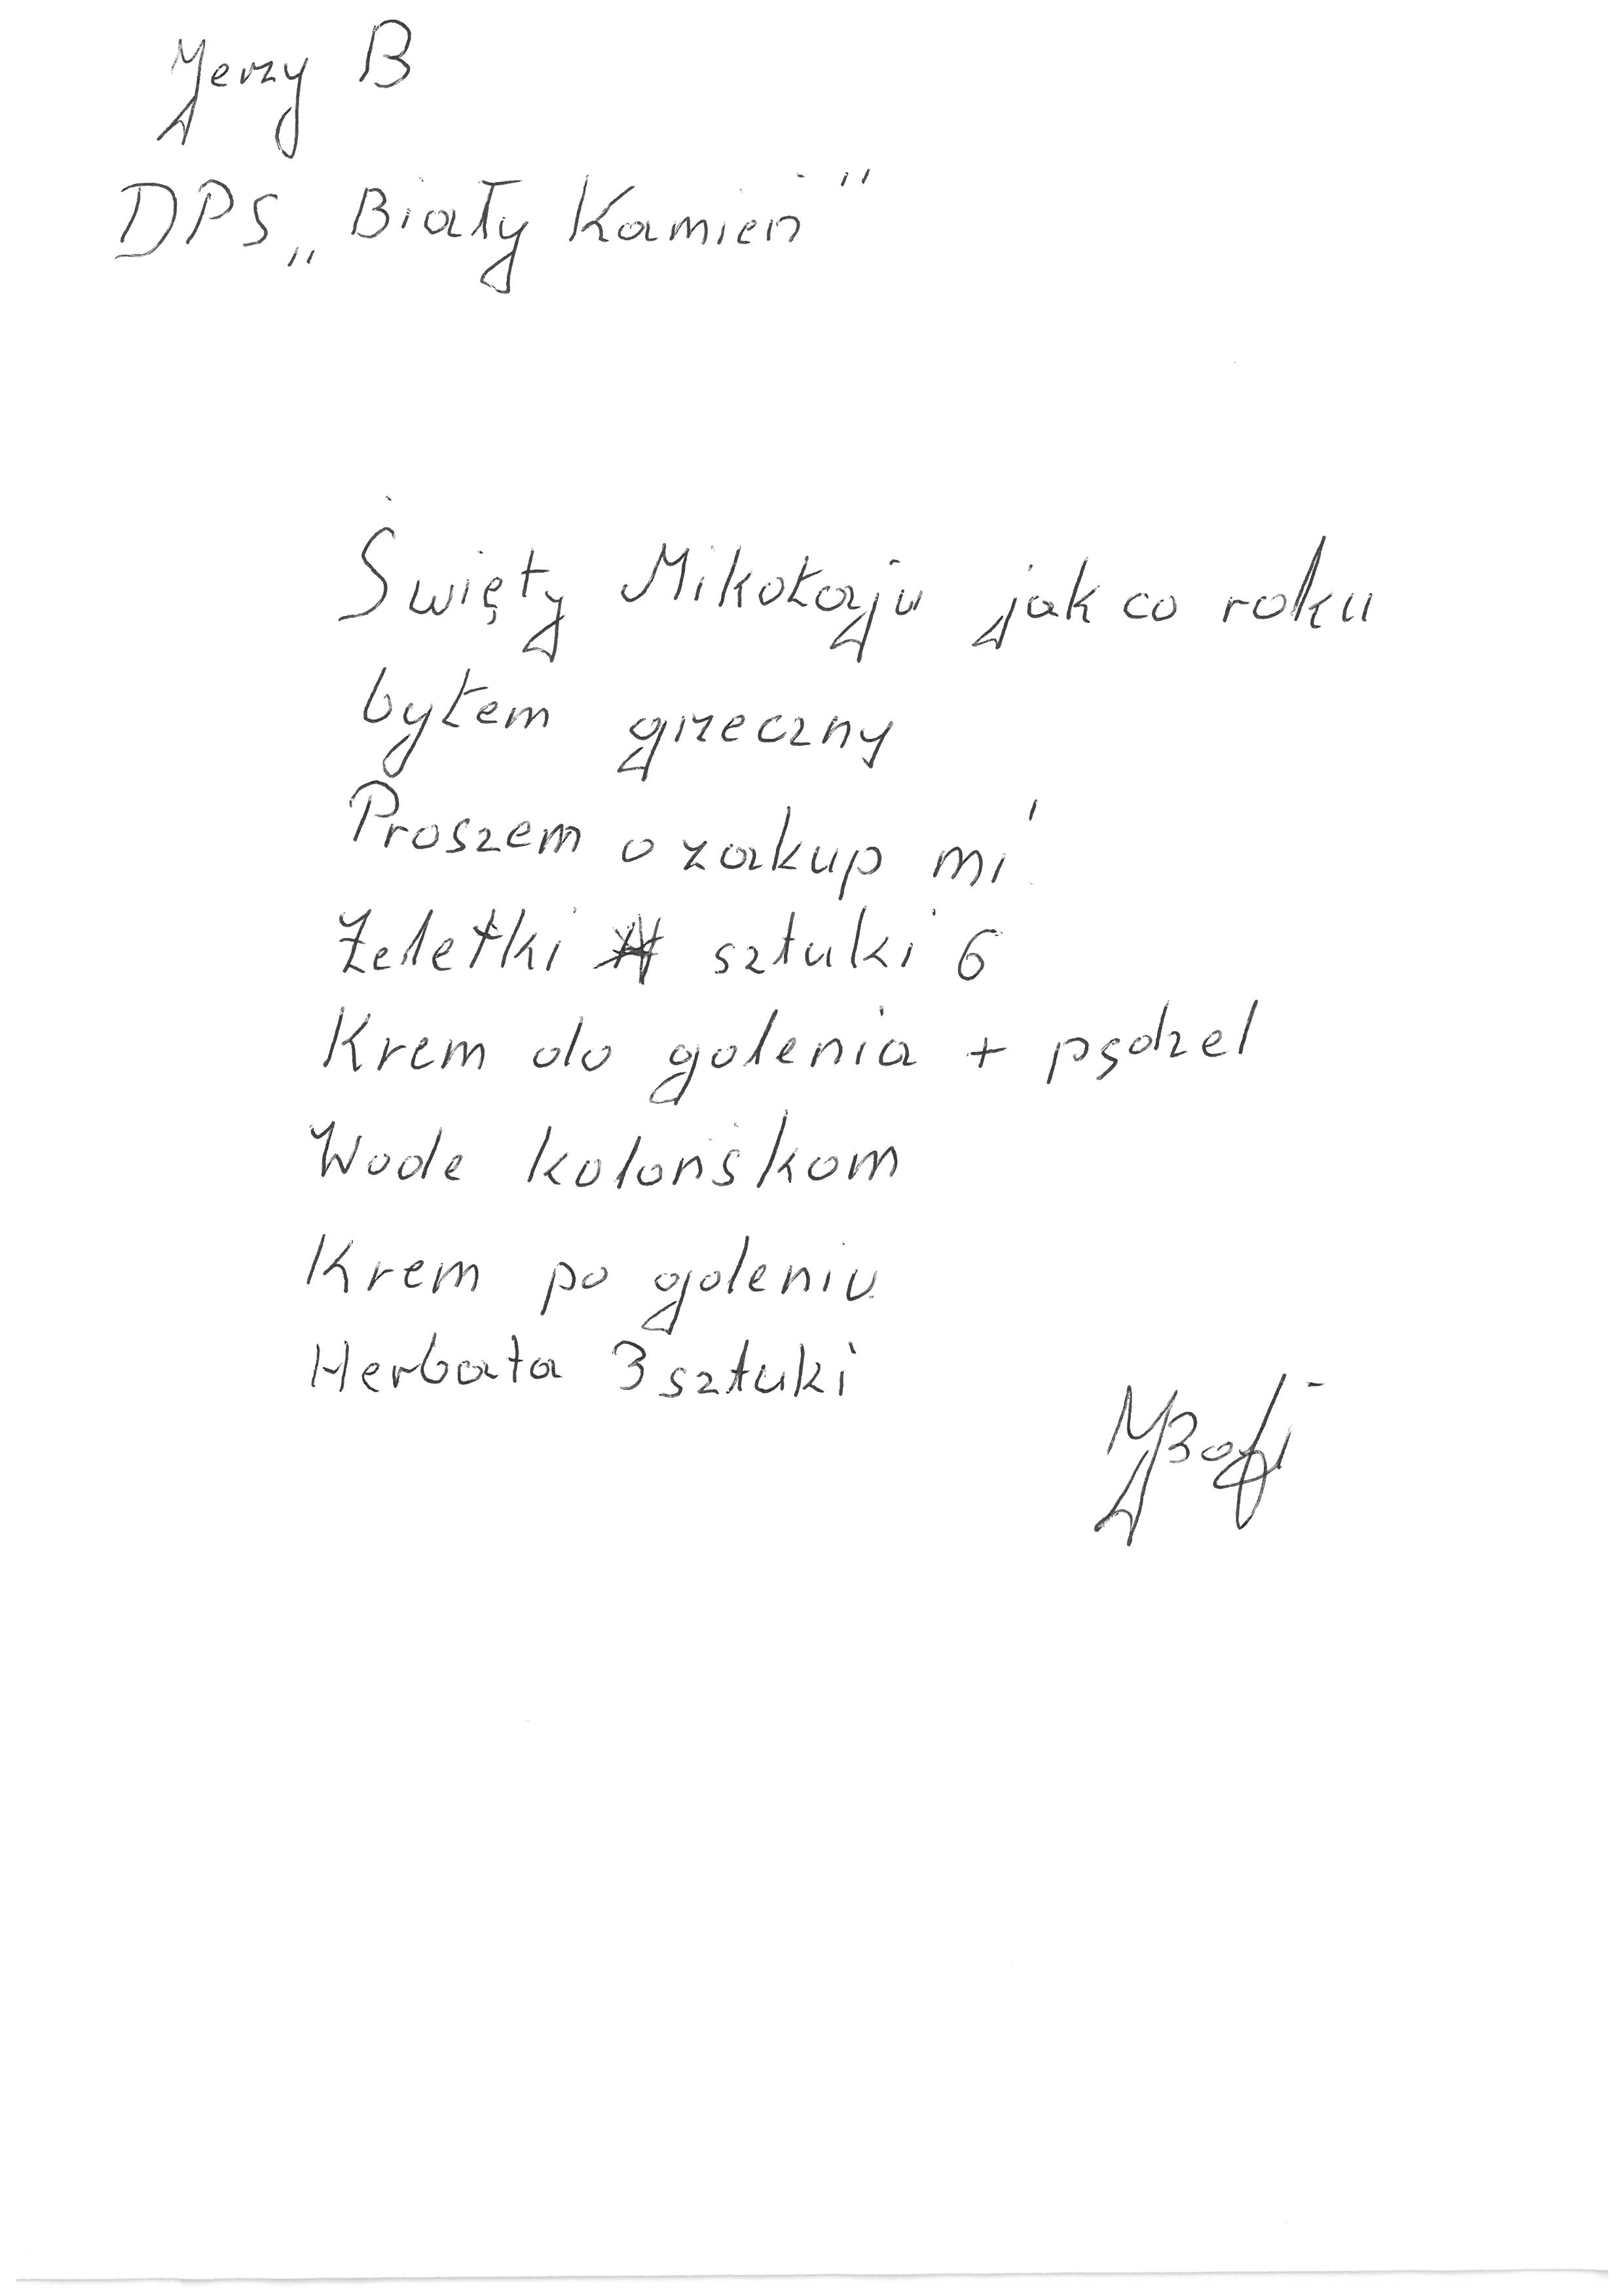 Jerzy B
DPS „Biały Kamień"
Święty Mikołaju jak co roku
byłem grzeczny
Proszem o zakup mi
Żeletki sztuki 6
Krem do golenia + pędzel
Wode kolońskom
Krem po goleniu
Herbata 3 sztuki